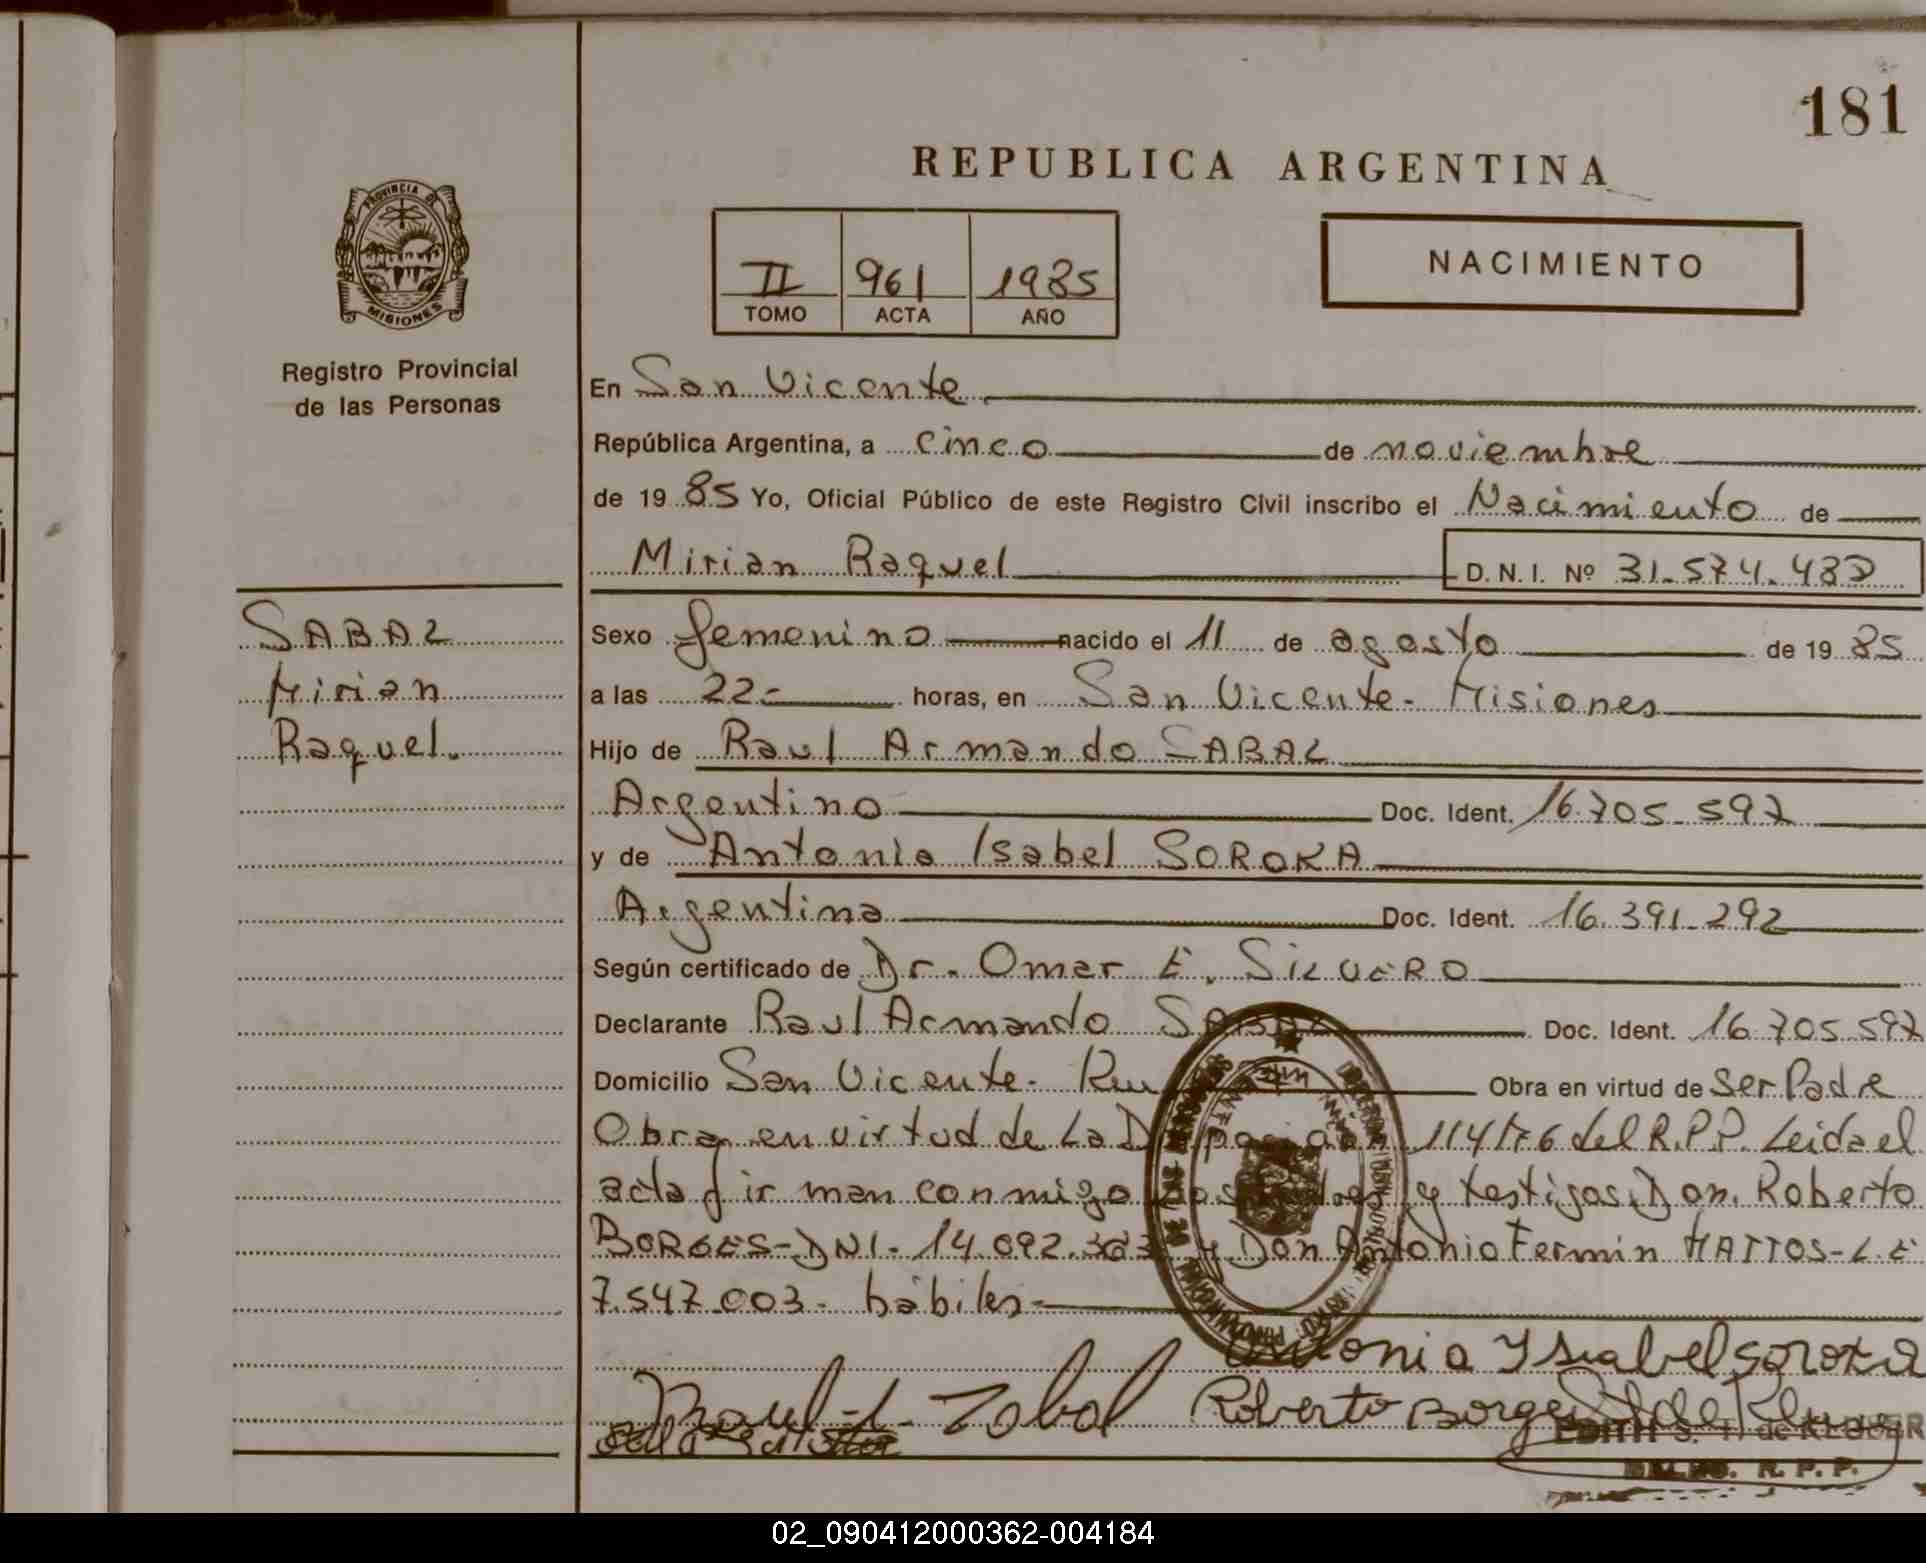 181
REPUBLICA ARGENTINA
PROVINCIA DE
MISIONES
Registro Provincial
de las Personas
II 961 1985
TOMO ACTA AÑO
NACIMIENTO
En San Vicente
República Argentina, a cinco de noviembre
de 19 85 Yo, Oficial Público de este Registro Civil inscribo el Nacimiento de
Mirian Raquel D. N. I. Nº 31.574.43
SABAL
Mirian
Raquel.
Sexo femenino nacido el 11 de agosto de 19 85
a las 22- horas, en San Vicente- Misiones
Hijo de Raul Armando SABAL
Argentino Doc. Ident. 16.705.597
y de Antonia Isabel SOROKA
Argentina Doc. Ident. 16.391.292
Según certificado de Dr. Omar E. SILVERO
Declarante Raul Armando SABAL Doc. Ident. 16.705.597
Domicilio San Vicente- Obra en virtud de Ser Padre
Obra en virtud de La 114/76 del R.P.P. Leida el
acta firman conmigo y testigos Don Roberto
BORGES-DNI-14.092.363 y Don Antonio Fermin MATTOS-L.E
7.547.003- hábiles-
Antonia Ysabel soroka
Raul A. Zabal Roberto Borges
EDITH S. T. de KLEUSER
DELEG. R. P. P.
02_090412000362-004184